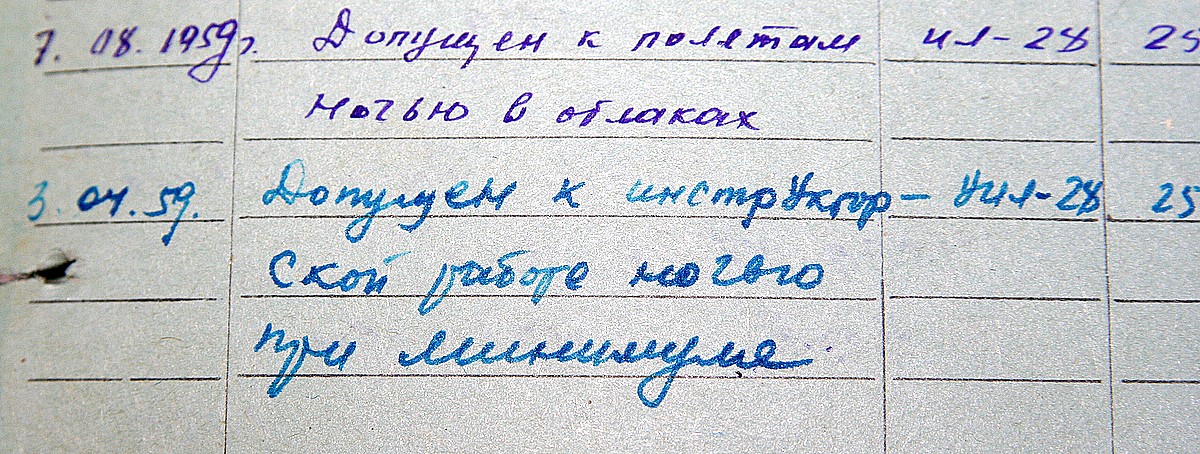 7. 08. 1959г. Допущен к полетам ил-28 25
ночью в облаках
3. 04. 59. Допущен к инструктор- Уил-28 25
ской работе ночью
при минимуме